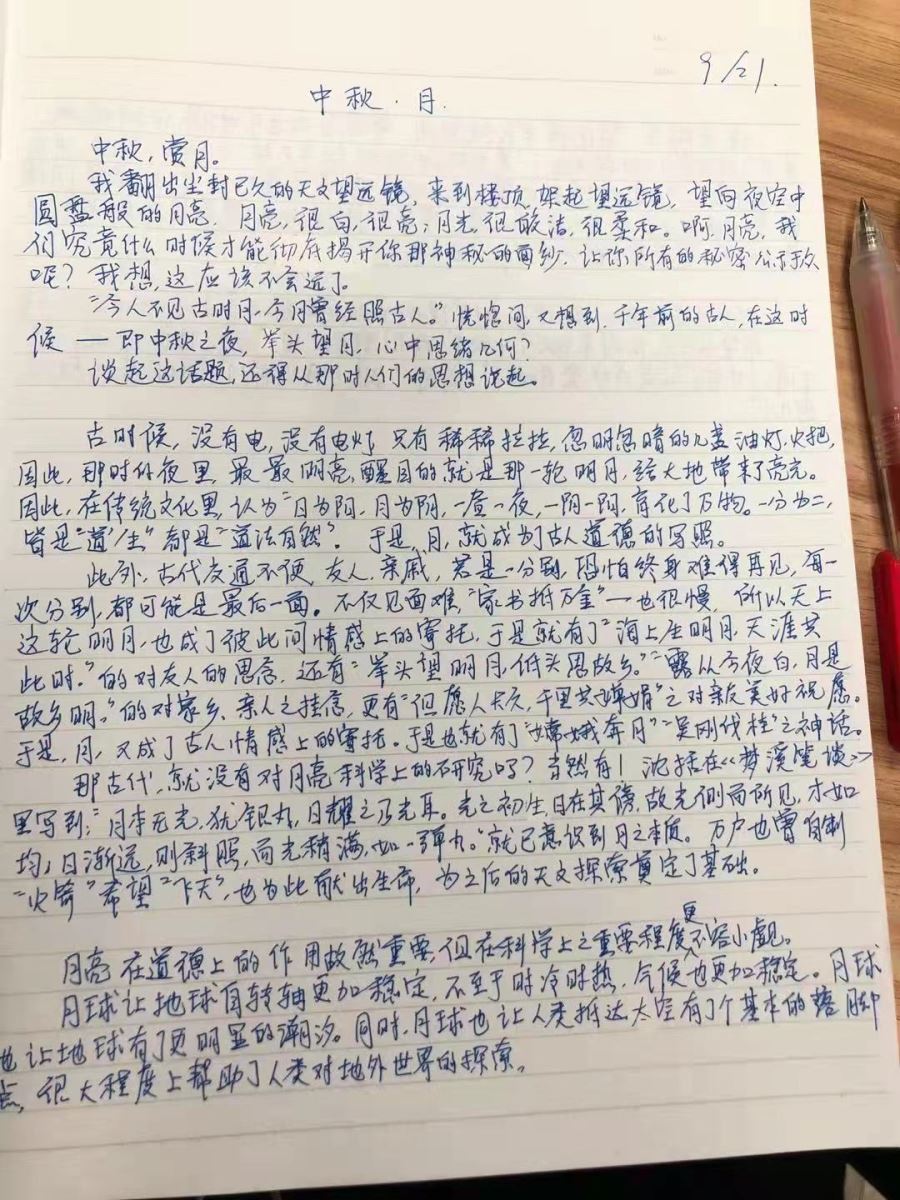 9/21.
中秋·月.
中秋,赏月。
我翻出尘封已久的天文望远镜,来到楼顶,架起望远镜,望向夜空中
圆盘般的月亮.月亮,很白,很亮;月光,很皎洁,很柔和。啊,月亮,我
们究竟什么时候才能彻底揭开你那神秘的面纱,让你所有的秘密公示于众
呢?我想,这应该不会远了。
"今人不见古时月,今月曾经照古人。"恍惚间,又想到,千年前的古人,在这时
候——即中秋之夜,举头望月,心中思绪几何?
谈起这话题,还得从那时人们的思想说起。
古时候,没有电,没有电灯,只有稀稀拉拉,忽明忽暗的几盏油灯,火把,
因此,那时的夜里,最最明亮,醒目的就是那一轮明月,给大地带来了亮光。
因此,在传统文化里,认为"日为阳,月为阴,一昼一夜,一阴一阳,育化了万物。一分为二,
皆是"道生"都是"道法自然"。于是,月,就成为了古人道德的写照。
此外,古代交通不便,友人,亲戚,若是一分别,恐怕终身难得再见,每一
次分别,都可能是最后一面。不仅见面难,"家书抵万金"—也很慢,所以天上
这轮明月,也成了彼此间情感上的寄托,于是就有了"海上生明月,天涯共
此时。"的对友人的思念,还有"举头望明月,低头思故乡。""露从今夜白,月是
故乡明。"的对家乡、亲人之挂念,更有"但愿人长久,千里共婵娟"之对亲友美好祝愿。
于是,月,又成了古人情感上的寄托。于是也就有了"嫦娥奔月""吴刚伐桂"之神话。
那古代,就没有对月亮科学上的研究吗?当然有!沈括在《梦溪笔谈》
里写到:"月本无光,犹银丸,日耀之乃光耳。光之初生,日在其傍,故光侧而所见,才如
钩;日渐远,则斜照,而光稍满,如一弹丸。"就已意识到月之本质。万户也曾自制
"火箭"希望"飞天",也为此献出生命,为之后的天文探索奠定了基础。
月亮在道德上的作用故然重要,但在科学上之重要程度更不容小觑。
月球让地球自转轴更加稳定,不至于时冷时热,气候也更加稳定。月球
也让地球有了更明显的潮汐。同时,月球也让人类抵达太空有了个基本的落脚
点,很大程度上帮助了人类对地外世界的探索。